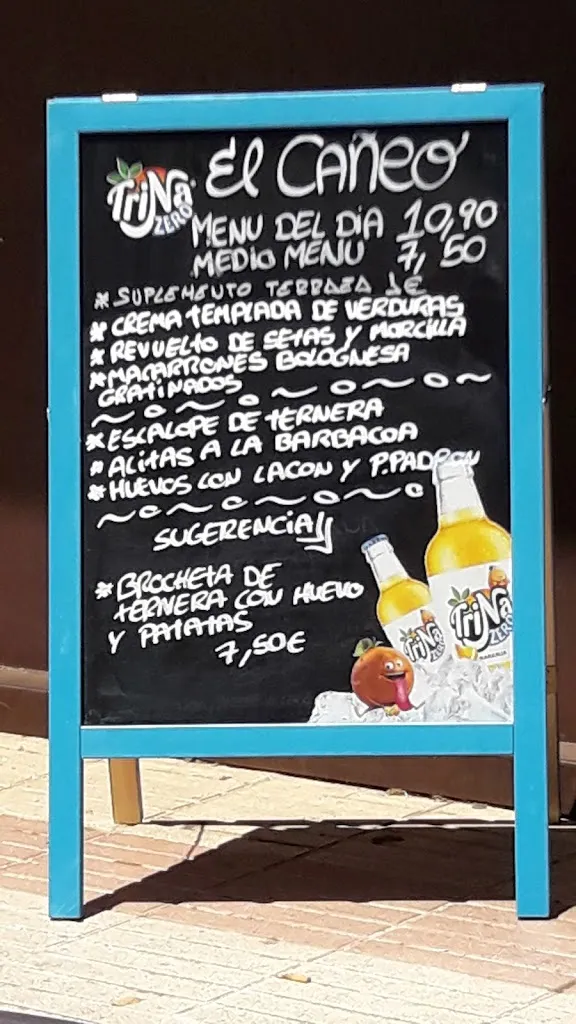 TRINA ZERO
El CAÑEO
MENU DEL DIA 10,90
MEDIO MENU 7,50
* SUPLEMENTO TERRAZA 1€
* CREMA TEMPLADA DE VERDURAS
* REVUELTO DE SETAS Y MORCILLA
* MACARRONES BOLOGNESA
GRATINADOS
* ESCALOPE DE TERNERA
* ALITAS A LA BARBACOA
* HUEVOS CON LACON Y P.PADRON
SUGERENCIA!!
* BROCHETA DE
TERNERA CON HUEVO
Y PATATAS
7,50€
TRINA ZERO
TRINA ZERO
NARANJA